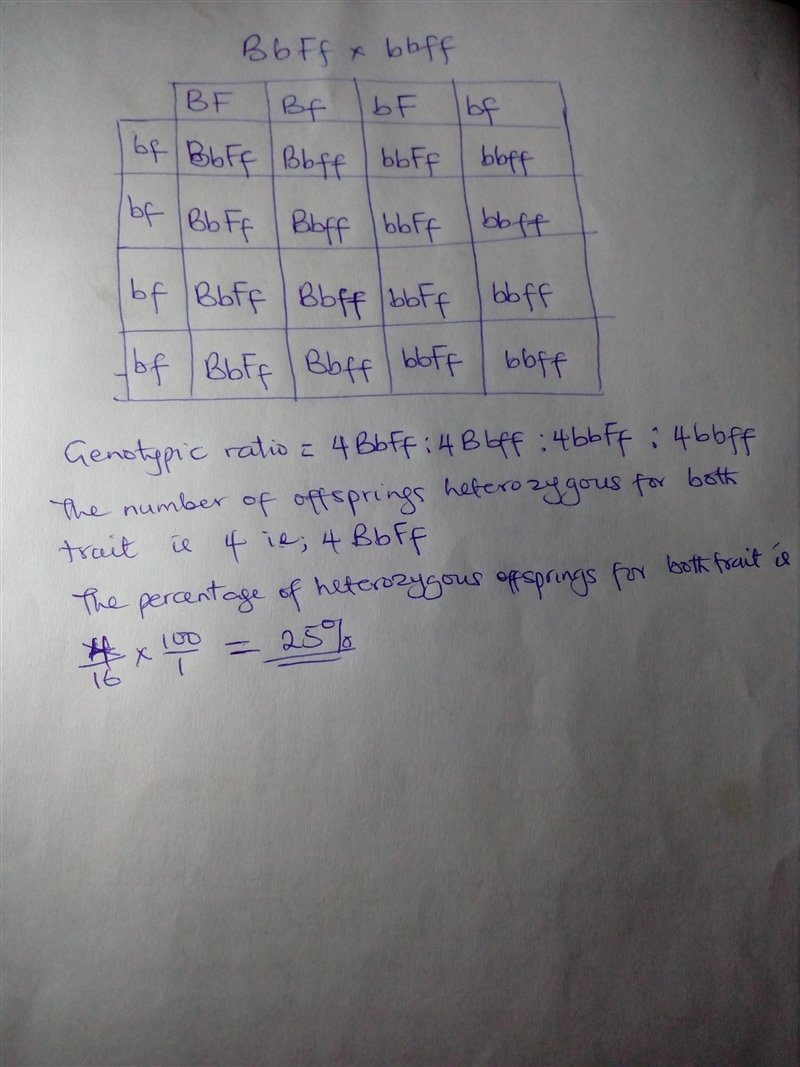 BbFf x bbff
BF Bf bF bf
bf BbFf Bbff bbFf bbff
bf BbFf Bbff bbFf bbff
bf BbFf Bbff bbFf bbff
bf BbFf Bbff bbFf bbff
Genotypic ratio = 4BbFf : 4Bbff : 4bbFf : 4bbff
The number of offsprings heterozygous for both
trait is 4 ie; 4 BbFf
The percentage of heterozygous offsprings for both trait is
4/16 x 100/1 = 25%